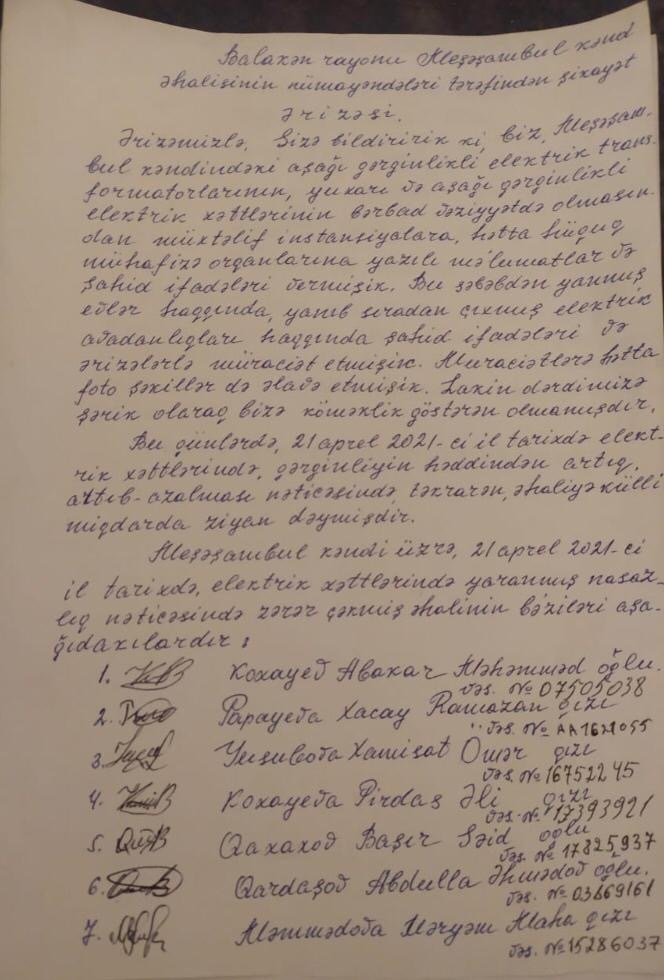 Balakən rayonu Meşəşambul kənd
əhalisinin nümayəndələri tərəfindən şikayət
ərizəsi.
Ərizəmizlə, Sizə bildiririk ki, biz, Meşəşam-
bul kəndindəki aşağı gərginlikli elektrik trans-
formatorlarının, yuxarı və aşağı gərginlikli
elektrik xəttlərinin bərbad vəziyyətdə olmasın-
dan müxtəlif instansiyalara, hətta hüquq
mühafizə organlarına yazılı məlumatlar və
şahid ifadələri vermişik. Bu səbəbdən yanmış
evlər haqqında, yanıb sıradan çıxmış elektrik
avadanlıqları haqqında şahid ifadələri və
ərizələrlə müraciət etmişik. Muraciətlərə hətta
foto şəkillər də əlavə etmişik. Lakin dərdimizə
şərik olaraq bizə köməklik göstərən olmamışdır.
Bu günlərdə, 21 aprel 2021-ci il tarixdə elekt-
rik xəttlərində, gərginliyin həddindən artıq,
artıb-azalması nəticəsində, təkrarən, əhaliyə külli
miqdarda ziyan dəymişdir.
Meşəşambul kəndi üzrə, 21 aprel 2021-ci
il tarixdə, elektrik xəttlərində yaranmış nasaz-
lıq nəticəsində zərər çəkmiş əhalinin bəziləri aşa-
ğıdakılardır:
1. Koxayev Abakar Məhəmməd oğlu.
vəs. № 07505038
2. Papayeva Xacay Ramazan qızı
vəs. № AA1621055
3. Yusubova Xamisat Ömər qızı
vəs. № 16752245
4. Koxayeva Pirdas Əli qızı
vəs. № 17393921
5. Qaxaxov Başir Səid oğlu
vəs. № 17825937
6. Qardaşov Abdulla Əhmədov oğlu.
vəs. № 03669161
7. Məmmədova Məryəm Maha qızı
vəs. № 15286037